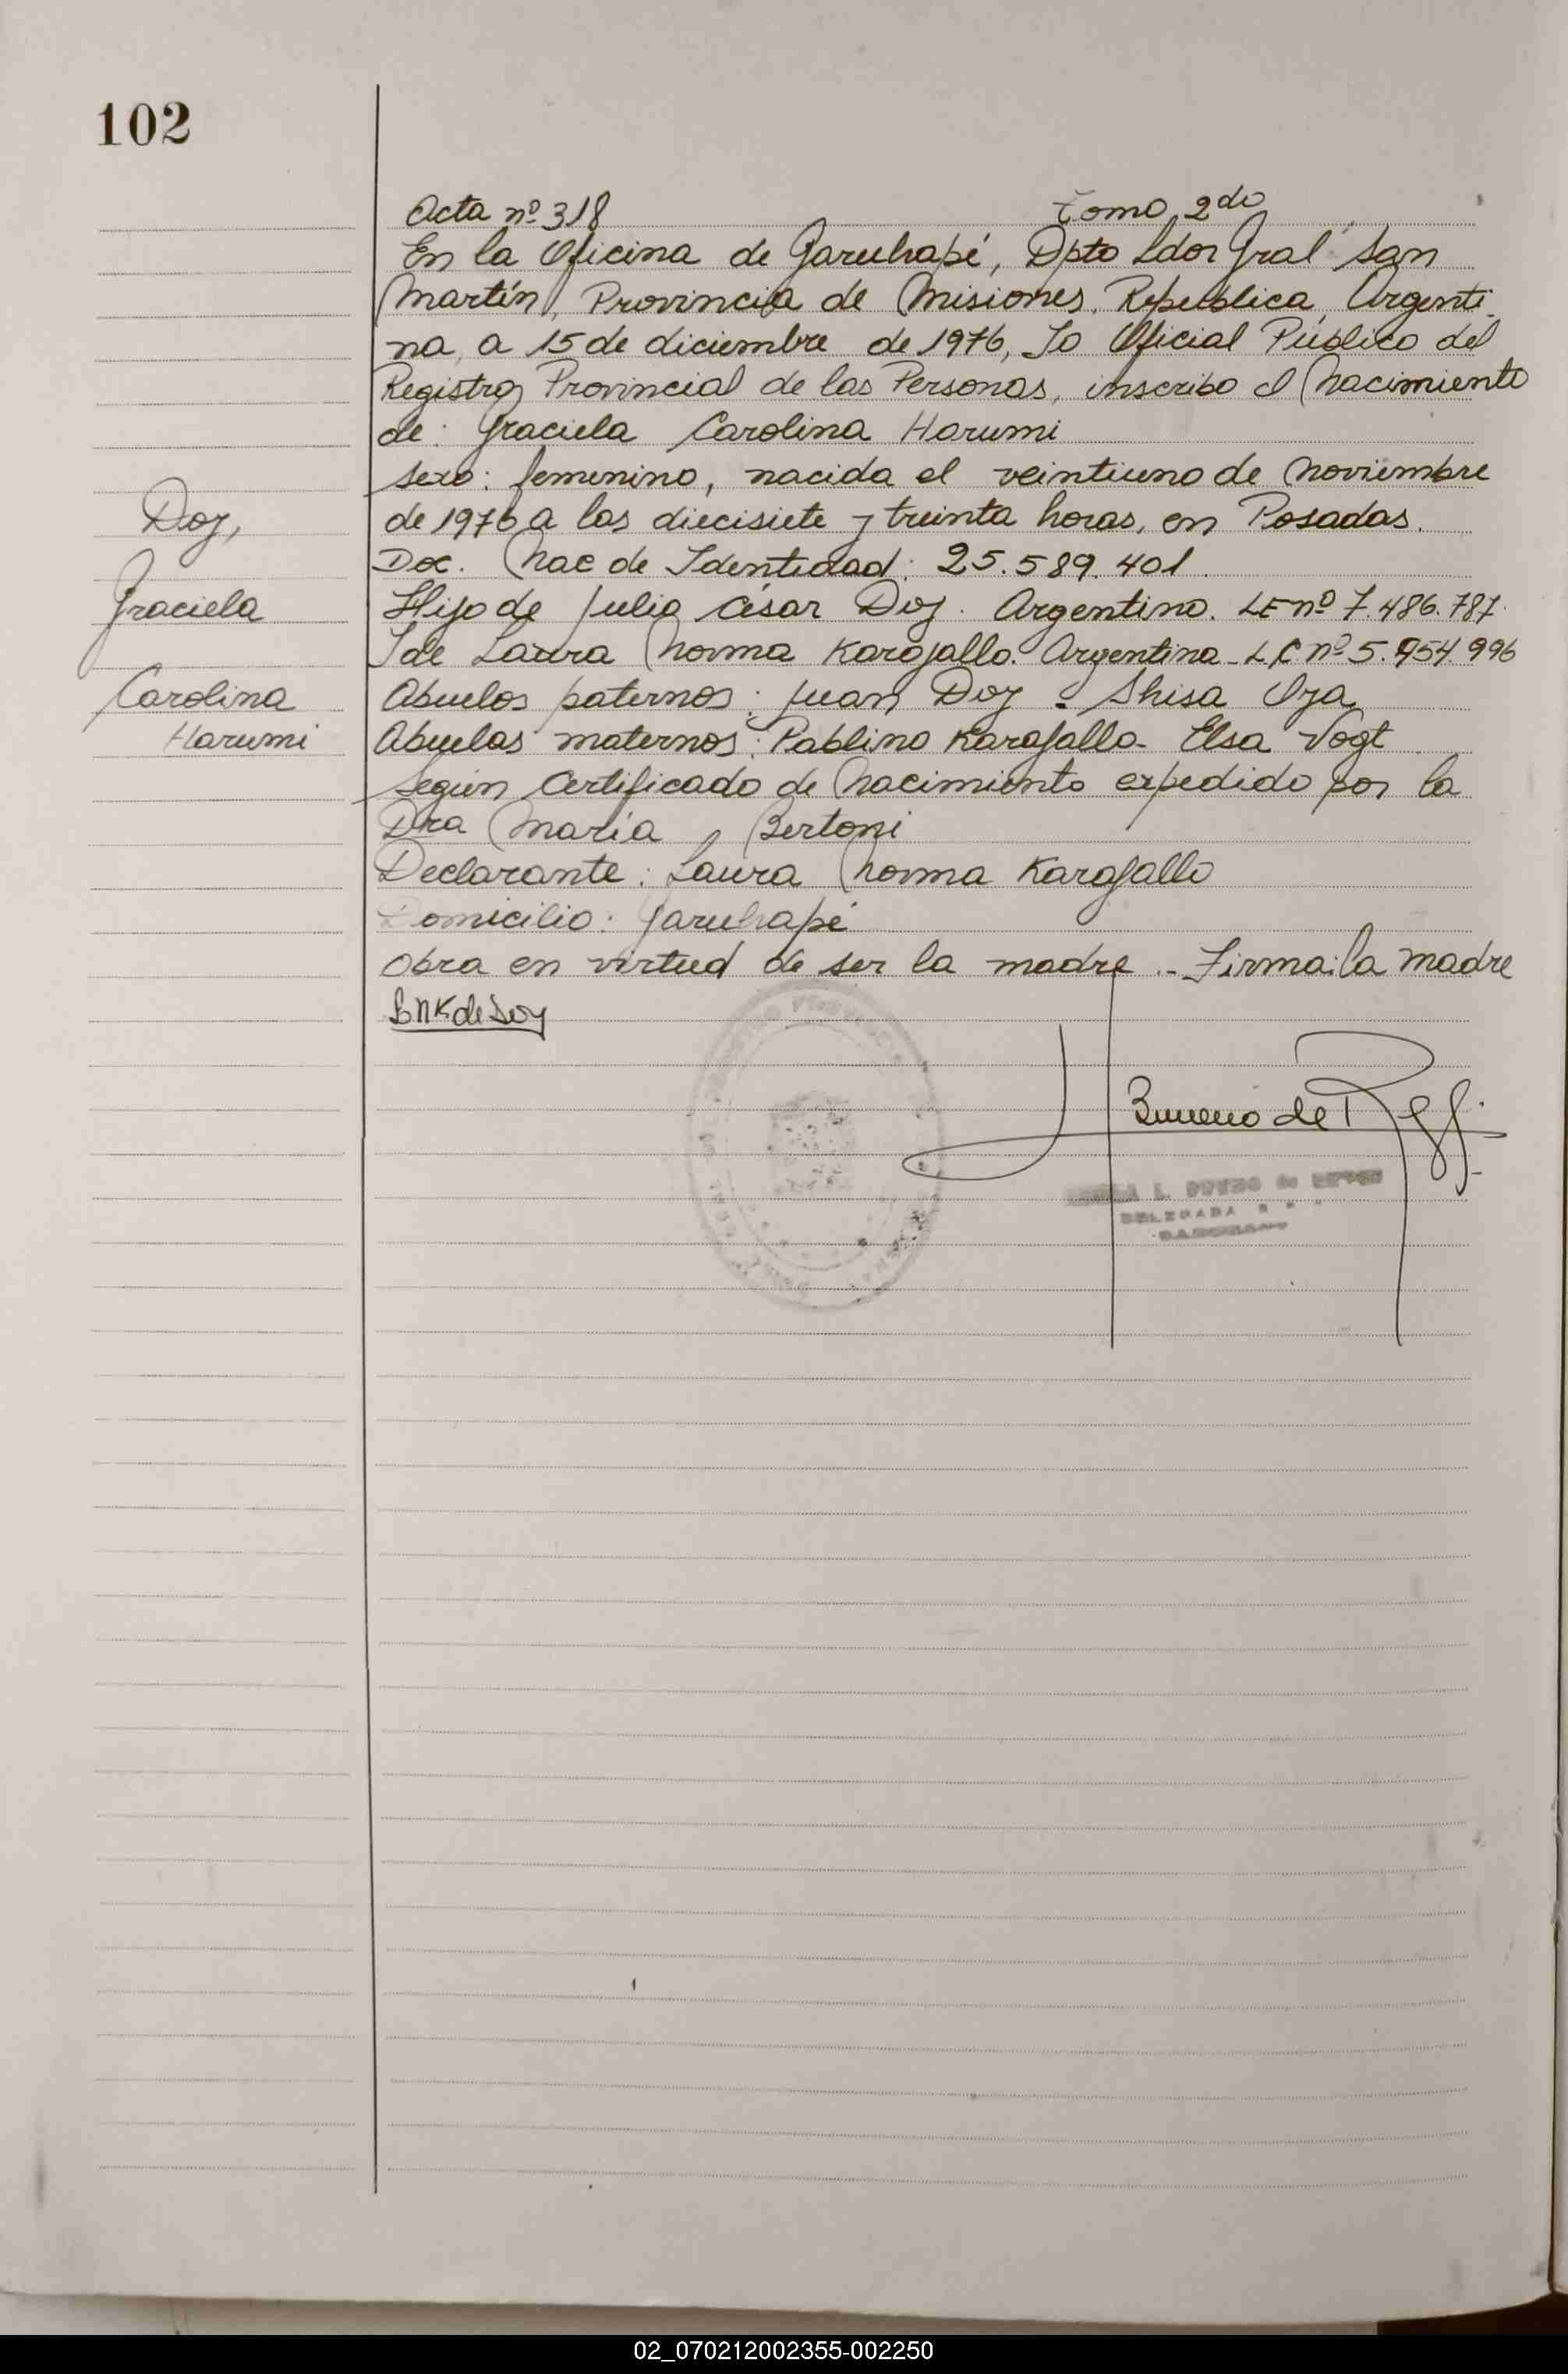 102
Acta nº 318 Tomo 2do
En la Oficina de Garuhapé, Dpto Ldor Gral San
Martín, Provincia de Misiones, Republica Argenti
na, a 15 de diciembre de 1976, Yo Oficial Público del
Registro Provincial de las Personas, inscribo el Nacimiento
de: Graciela Carolina Harumi
sexo: femenino, nacida el veintiuno de Noviembre
de 1976 a las diecisiete y treinta horas, en Posadas.
Doc. Nac de Identidad: 25.589.401.
Hijo de Julio César Doy. Argentino. LE nº 7.486.787.
Y de Laura Norma Karajallo. Argentina - LC nº 5.954.996
Abuelos paternos: Juan Doy - Shisa
Abuelos maternos: Pablino Karajallo - Elsa Vogt
Según Certificado de Nacimiento expedido por la
Dra María Bertoni
Declarante: Laura Norma Karajallo
Domicilio: Garuhapé
Obra en virtud de ser la madre .- Firma: la madre
LNK de Doy
Doy,
Graciela
Carolina
Harumi
Bueno de
DELEGADA
02_070212002355-002250